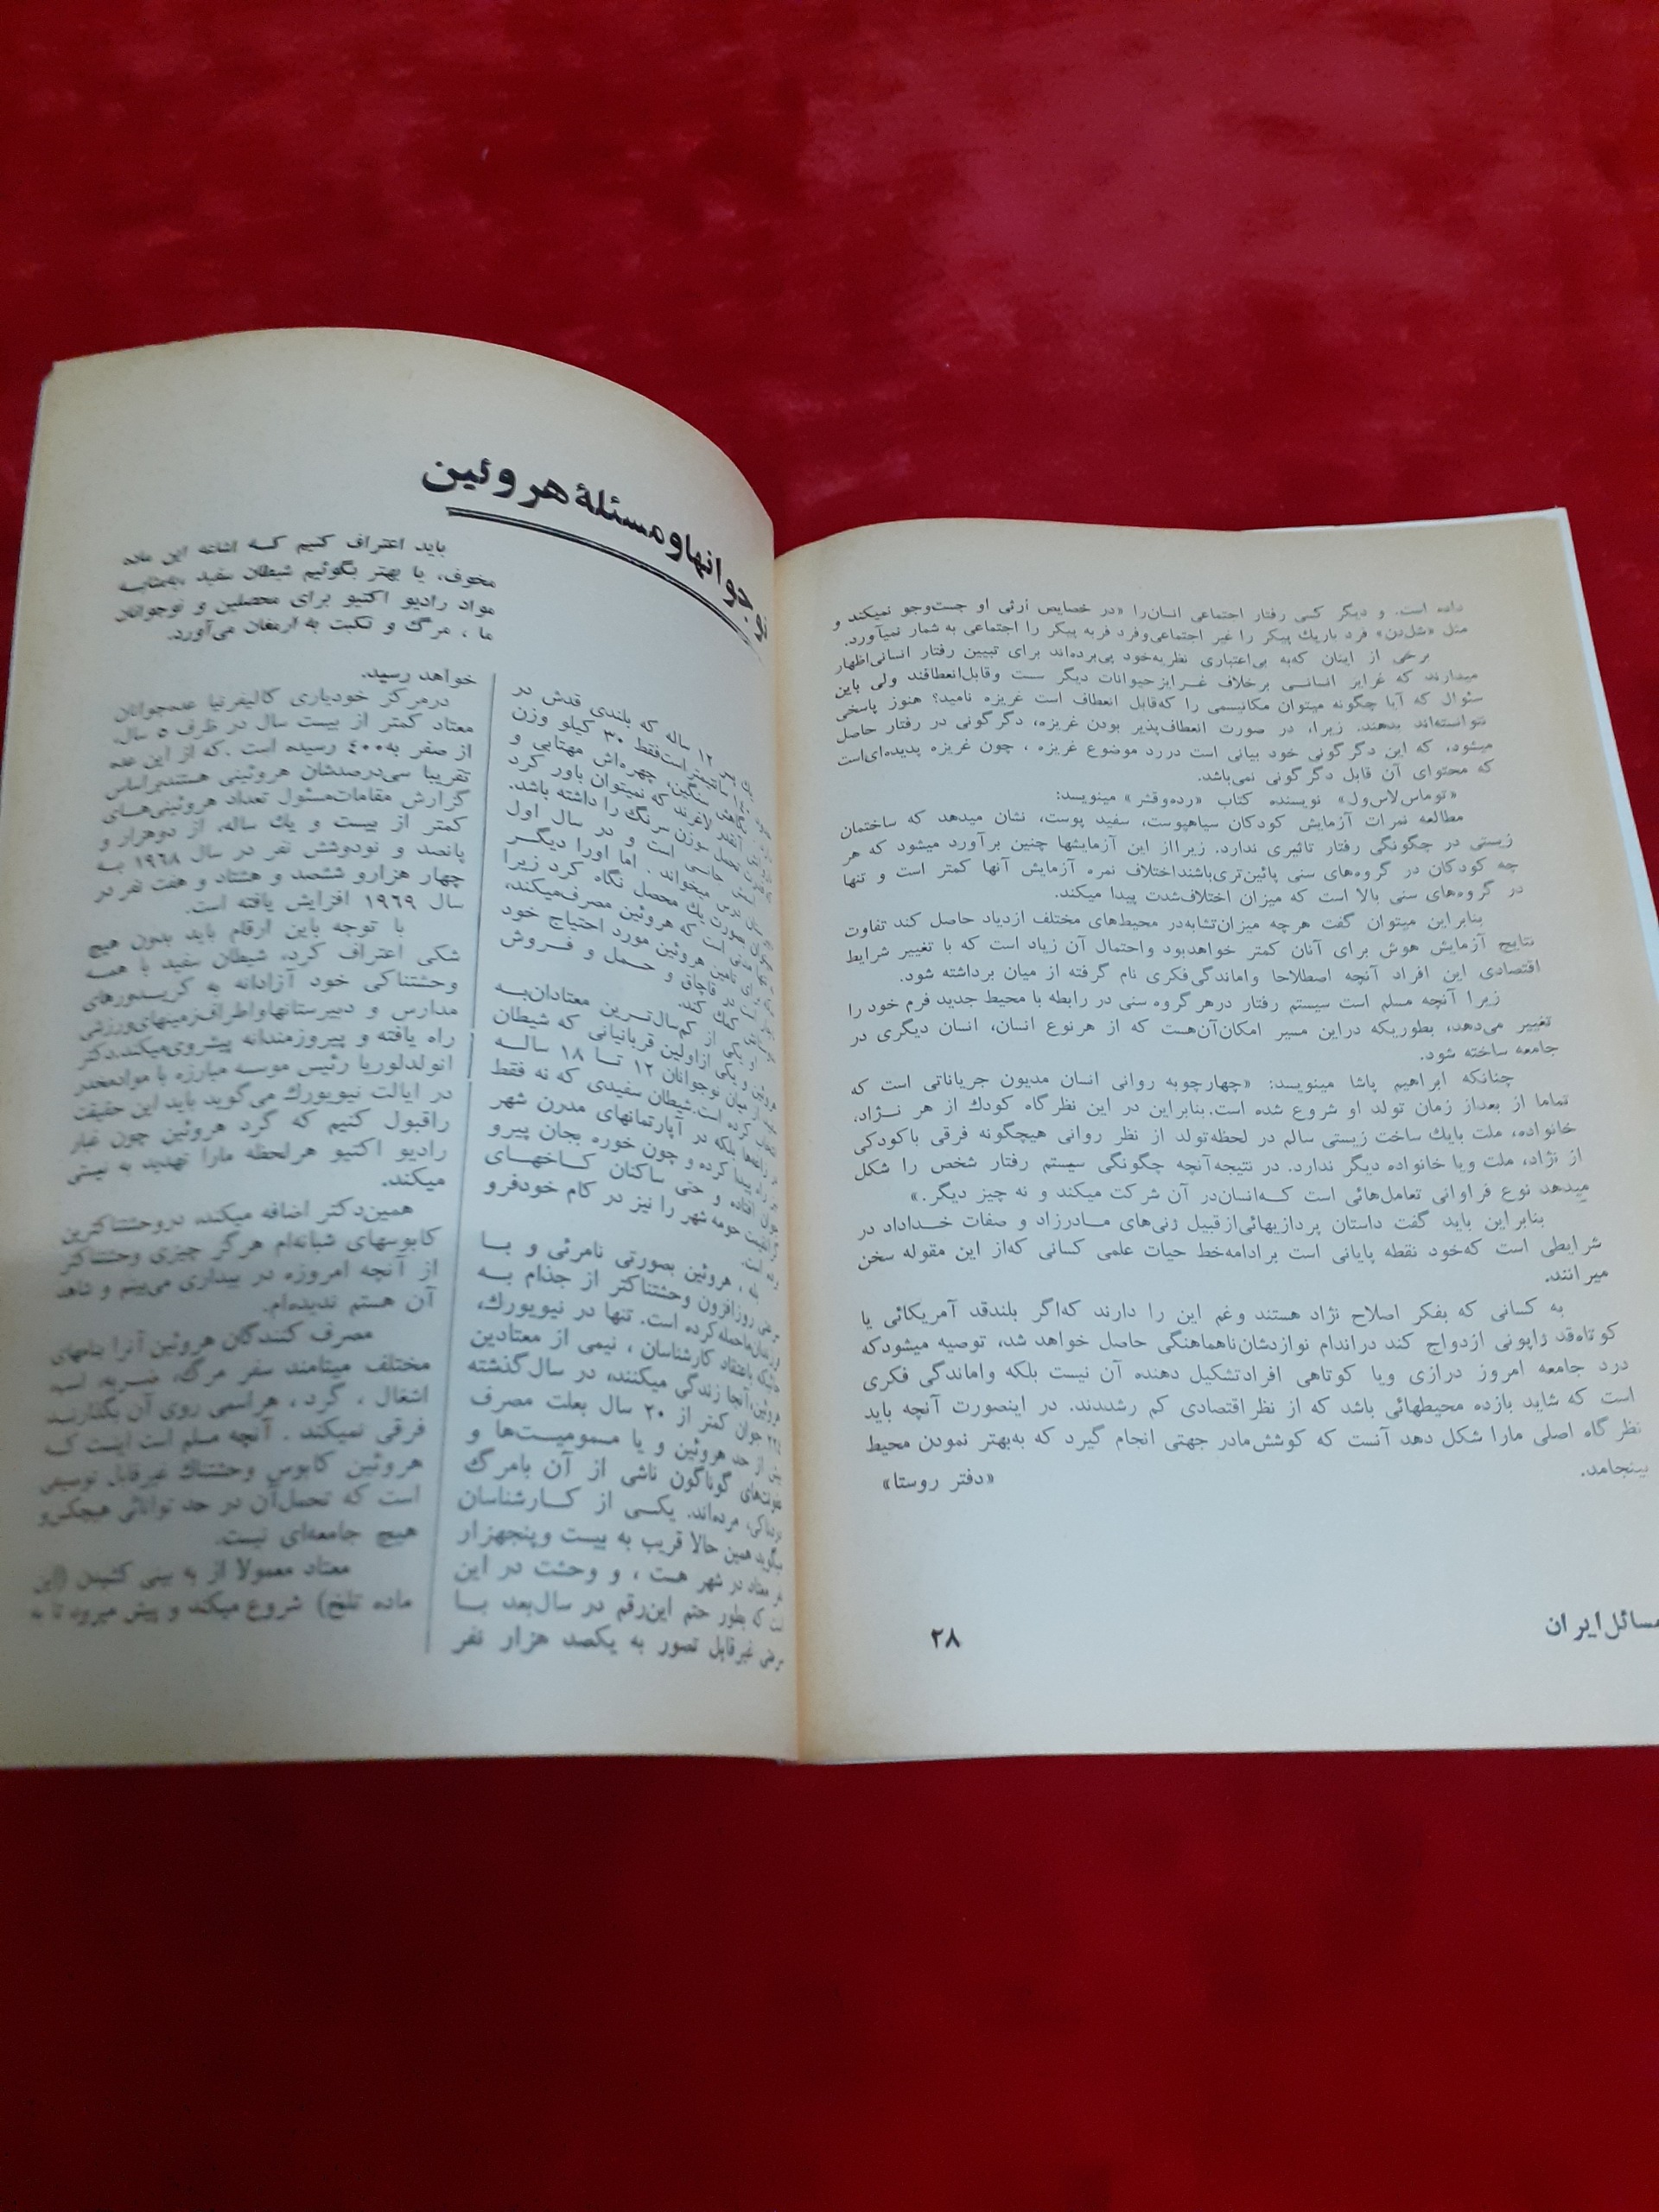 داده است. و دیگر کسی رفتار اجتماعی انسان‌را «در خصایص ارثی او جست‌وجو نمیکند و
مثل «شل‌دن» فرد باریك پیکر را غیر اجتماعی‌وفرد فربه پیکر را اجتماعی به شمار نمیآورد.
برخی از اینان که‌به بی‌اعتباری نظریه‌خود پی‌برده‌اند برای تبیین رفتار انسانی‌اظهار
میدارند که غرایز انسانی برخلاف غرایزحیوانات دیگر ست وقابل‌انعطافند ولی باین
سئوال که آیا چگونه میتوان مکانیسمی را که‌قابل انعطاف است غریزه نامید؟ هنوز پاسخی
نتوانسته‌اند بدهند. زیرا، در صورت انعطاف‌پذیر بودن غریزه، دگرگونی در رفتار حاصل
میشود، که این دگرگونی خود بیانی است دررد موضوع غریزه ، چون غریزه پدیده‌ای‌است
که محتوای آن قابل دگرگونی نمی‌باشد.
«توماس‌لاس‌ول» نویسنده کتاب «رده‌وقشر» مینویسد:
مطالعه نمرات آزمایش کودکان سیاهپوست، سفید پوست، نشان میدهد که ساختمان
زیستی در چگونگی رفتار تاثیری ندارد. زیرااز این آزمایشها چنین برآورد میشود که هر
چه کودکان در گروه‌های سنی پائین‌تری‌باشنداختلاف نمره آزمایش آنها کمتر است و تنها
در گروه‌های سنی بالا است که میزان اختلاف‌شدت پیدا میکند.
بنابراین میتوان گفت هرچه میزان‌تشابه‌در محیط‌های مختلف ازدیاد حاصل کند تفاوت
نتایج آزمایش هوش برای آنان کمتر خواهدبود واحتمال آن زیاد است که با تغییر شرایط
اقتصادی این افراد آنچه اصطلاحا واماندگی‌فکری نام گرفته از میان برداشته شود.
زیرا آنچه مسلم است سیستم رفتار درهرگروه سنی در رابطه با محیط جدید فرم خود را
تغییر می‌دهد، بطوریکه دراین مسیر امکان‌آن‌هست که از هرنوع انسان، انسان دیگری در
جامعه ساخته شود.
چنانکه ابراهیم پاشا مینویسد: «چهارچوبه روانی انسان مدیون جریاناتی است که
تماما از بعداز زمان تولد او شروع شده است.بنابراین در این نظرگاه کودك از هر نژاد،
خانواده، ملت بایك ساخت زیستی سالم در لحظه‌تولد از نظر روانی هیچگونه فرقی باکودکی
از نژاد، ملت ویا خانواده دیگر ندارد. در نتیجه‌آنچه چگونگی سیستم رفتار شخص را شکل
میدهد نوع فراوانی تعامل‌هائی است که‌انسان‌در آن شرکت میکند و نه چیز دیگر.»
بنابراین باید گفت داستان پردازیهائی‌ازقبیل زنی‌های مادرزاد و صفات خداداد در
شرایطی است که‌خود نقطه پایانی است برادامه‌خط حیات علمی کسانی که‌از این مقوله سخن
میرانند.
به کسانی که بفکر اصلاح نژاد هستند وغم این را دارند که‌اگر بلندقد آمریکائی یا
کوتاه‌قد ژاپونی ازدواج کند دراندام نوازدشان‌ناهماهنگی حاصل خواهد شد، توصیه میشودکه
درد جامعه امروز درازی ویا کوتاهی افرادتشکیل دهنده آن نیست بلکه واماندگی فکری
است که شاید بازده محیطهائی باشد که از نظراقتصادی کم رشدند. در اینصورت آنچه باید
نظرگاه اصلی مارا شکل دهد آنست که کوشش‌مادر جهتی انجام گیرد که به‌بهتر نمودن محیط
بینجامد.
«دفتر روستا»
مسائل ایران
۲۸
نوجوانهاومسئلهٔ هروئین
باید اعتراف کنیم که اشاعه این ماده
مخوف، یا بهتر بگوئیم شیطان سفید ،به‌مثابه
مواد رادیو اکتیو برای محصلین و نوجوانان
ما ، مرگ و نکبت به ارمغان می‌آورد.
۱۲ ساله که بلندی قدش در
است‌فقط ۳۰ کیلو وزن
سنگین، چهره‌اش مهتابی و
لاغرند که نمیتوان باور کرد
سوزن سرنگ را داشته باشد.
جانسی است و در سال اول
میخواند . اما اورا دیگر
بصورت یك محصل نگاه کرد زیرا
است که هروئین مصرف‌میکند،
تامین هروئین مورد احتیاج خود
در قاچاق و حمل و فروش
کمك کند.
یکی از کم‌سال‌ترین معتادان‌به
و یکی ازاولین قربانیانی که شیطان
میان نوجوانان ۱۲ تا ۱۸ ساله
کرده است.شیطان سفیدی که نه فقط
بلکه در آپارتمانهای مدرن شهر
پیدا کرده و چون خوره بجان پیرو
افتاده و حتی ساکنان کاخهای
حومه شهر را نیز در کام خودفرو
است.
، هروئین بصورتی نامرئی و با
روزافزون وحشتناکتر از جذام به
حمله‌کرده است. تنها در نیویورك،
باعتقاد کارشناسان ، نیمی از معتادین
آنجا زندگی میکنند، در سال‌گذشته
جوان کمتر از ۲۰ سال بعلت مصرف
از حد هروئین و یا مسمومیت‌ها و
گوناگون ناشی از آن بامرگ
مرده‌اند. یکی از کارشناسان
همین حالا قریب به بیست وپنجهزار
معتاد در شهر هست ، و وحشت در این
که بطور حتم این‌رقم در سال‌بعد با
غیرقابل تصور به یکصد هزار نفر
خواهد رسید.
درمرکز خودیاری کالیفرنیا عده‌جوانان
معتاد کمتر از بیست سال در ظرف ۵ سال،
از صفر به۴۰۰ رسیده است .که از این عده
تقریبا سی‌درصدشان هروئینی هستند،براساس
گزارش مقامات‌مسئول تعداد هروئینی‌های
کمتر از بیست و یك ساله، از دوهزار و
پانصد و نودوشش نفر در سال ۱۹۶۸ به
چهار هزارو ششصد و هشتاد و هفت نفر در
سال ۱۹۶۹ افزایش یافته است.
با توجه باین ارقام باید بدون هیچ
شکی اعتراف کرد، شیطان سفید با همه
وحشتناکی خود آزادانه به کریدورهای
مدارس و دبیرستانهاواطراف‌زمینهای‌ورزشی
راه یافته و پیروزمندانه پیشروی‌میکند.دکتر
انولدلوریا رئیس موسسه مبارزه با موادمخدر
در ایالت نیویورك می‌گوید باید این حقیقت
راقبول کنیم که گرد هروئین چون غبار
رادیو اکتیو هرلحظه مارا تهدید به نیستی
میکند.
همین‌دکتر اضافه میکند، دروحشتناکترین
کابوسهای شبانه‌ام هرگز چیزی وحشتناکتر
از آنچه امروزه در بیداری می‌بینم و شاهد
آن هستم ندیده‌ام.
مصرف کنندگان هروئین آنرا بنامهای
مختلف مینامند سفر مرگ، ضربه، اسب،
اشغال ، گرد ، هراسمی روی آن بگذارند
فرقی نمیکند . آنچه مسلم است اینست که
هروئین کابوس وحشتناك غیرقابل توصیفی
است که تحمل‌آن در حد توانائی هیچکس‌و
هیچ جامعه‌ای نیست.
معتاد معمولا از به بینی کشیدن (این
ماده تلخ) شروع میکند و پیش میرود تا به